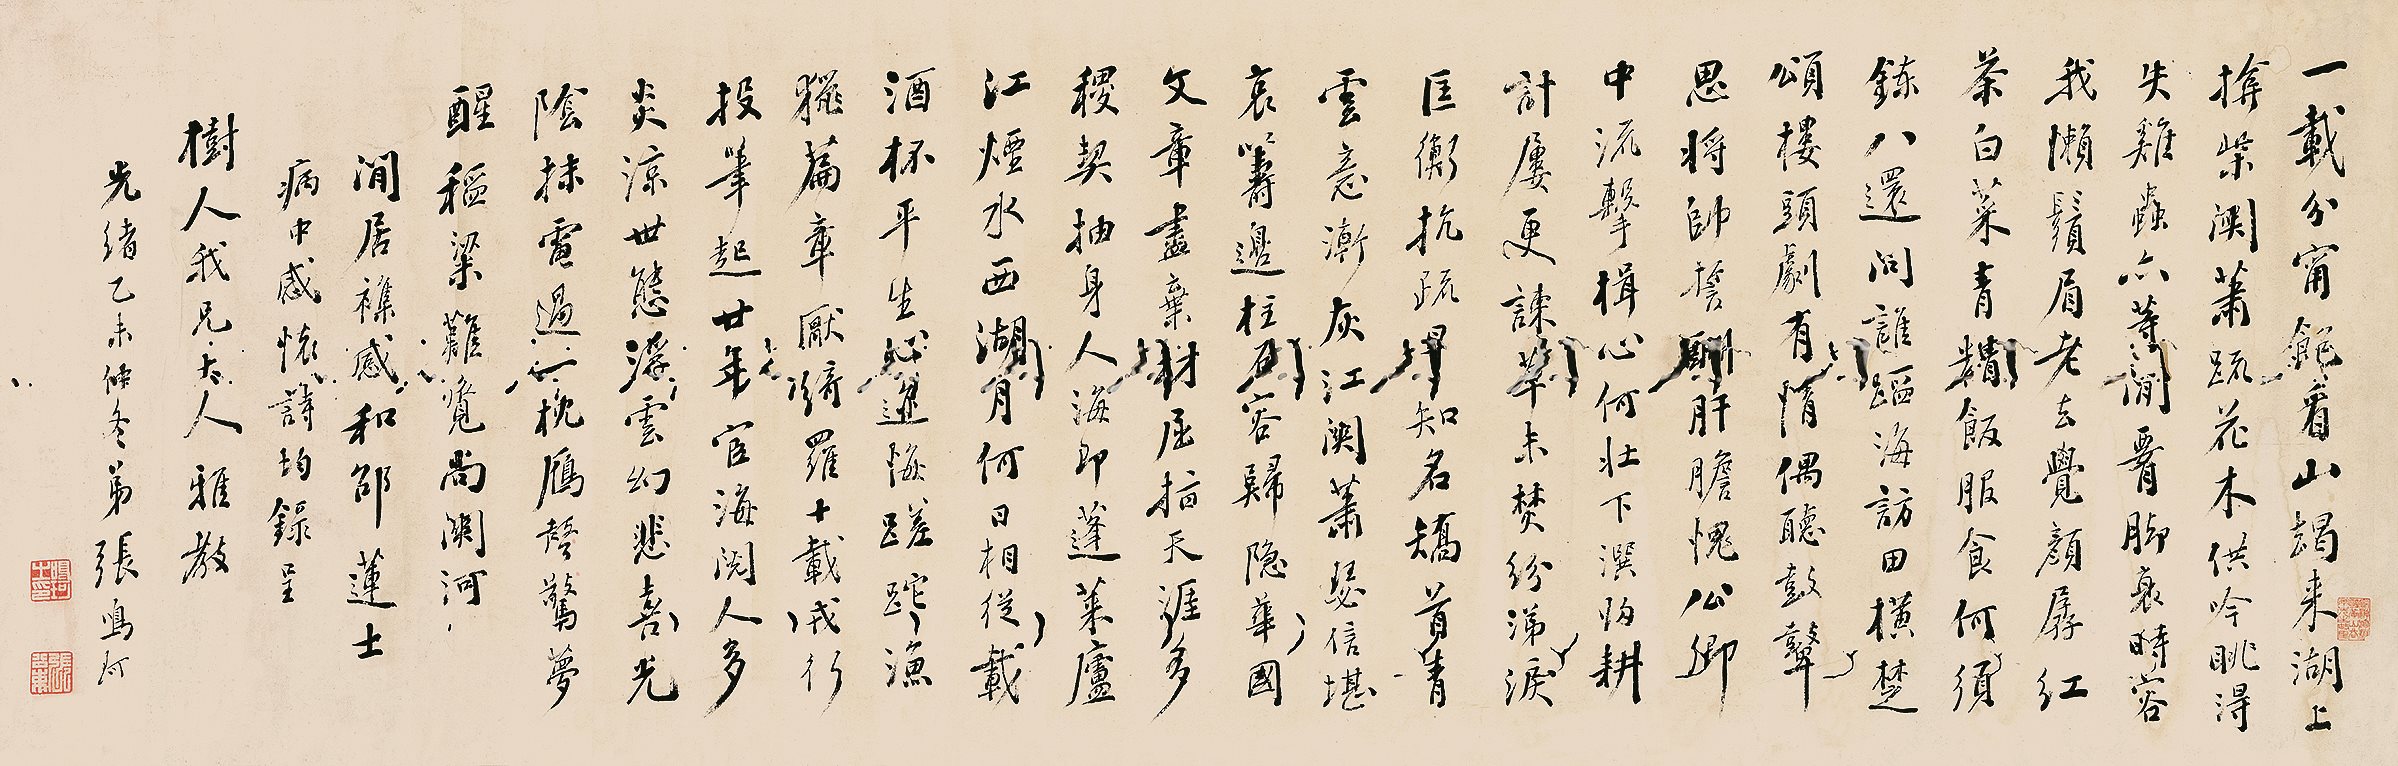 一載分甯飽看山朅來湖上
掩柴關蕭疏花木供吟眺得
失雞蟲亦等閒臂腳衰時容
我懶鬚眉老去覺顏孱紅
茶白菜青精飯服食何須
鍊八還問誰蹈海訪田橫楚
頌樓頭劇有隋偶聽鼓鼙
思將帥撐肝膽愧公卿
中流擊楫心何壯下潠歸耕
計屢更諫草未焚紛涕淚
匡衡抗疏早知名矯首青
雲意漸灰江關蕭瑟信堪
哀籌邊柱石容歸隱華國
文章盡棄材屈指天涯多
稷契抽身人海即蓬萊廬
江煙水西湖月何日相從載
酒杯平生心迹悔蹉跎漁
獵篇章厭綺羅十載戎行
投筆起廿年宦海閱人多
炎涼世態浮雲幻悲喜光
陰抹電過一枕鴈聲驚夢
醒稻粱難覓尚關河
閒居襍感和邵蓮士
病中感懷詩均錄呈
樹人我兄大人雅教
光緒乙未仲冬弟張鳴珂